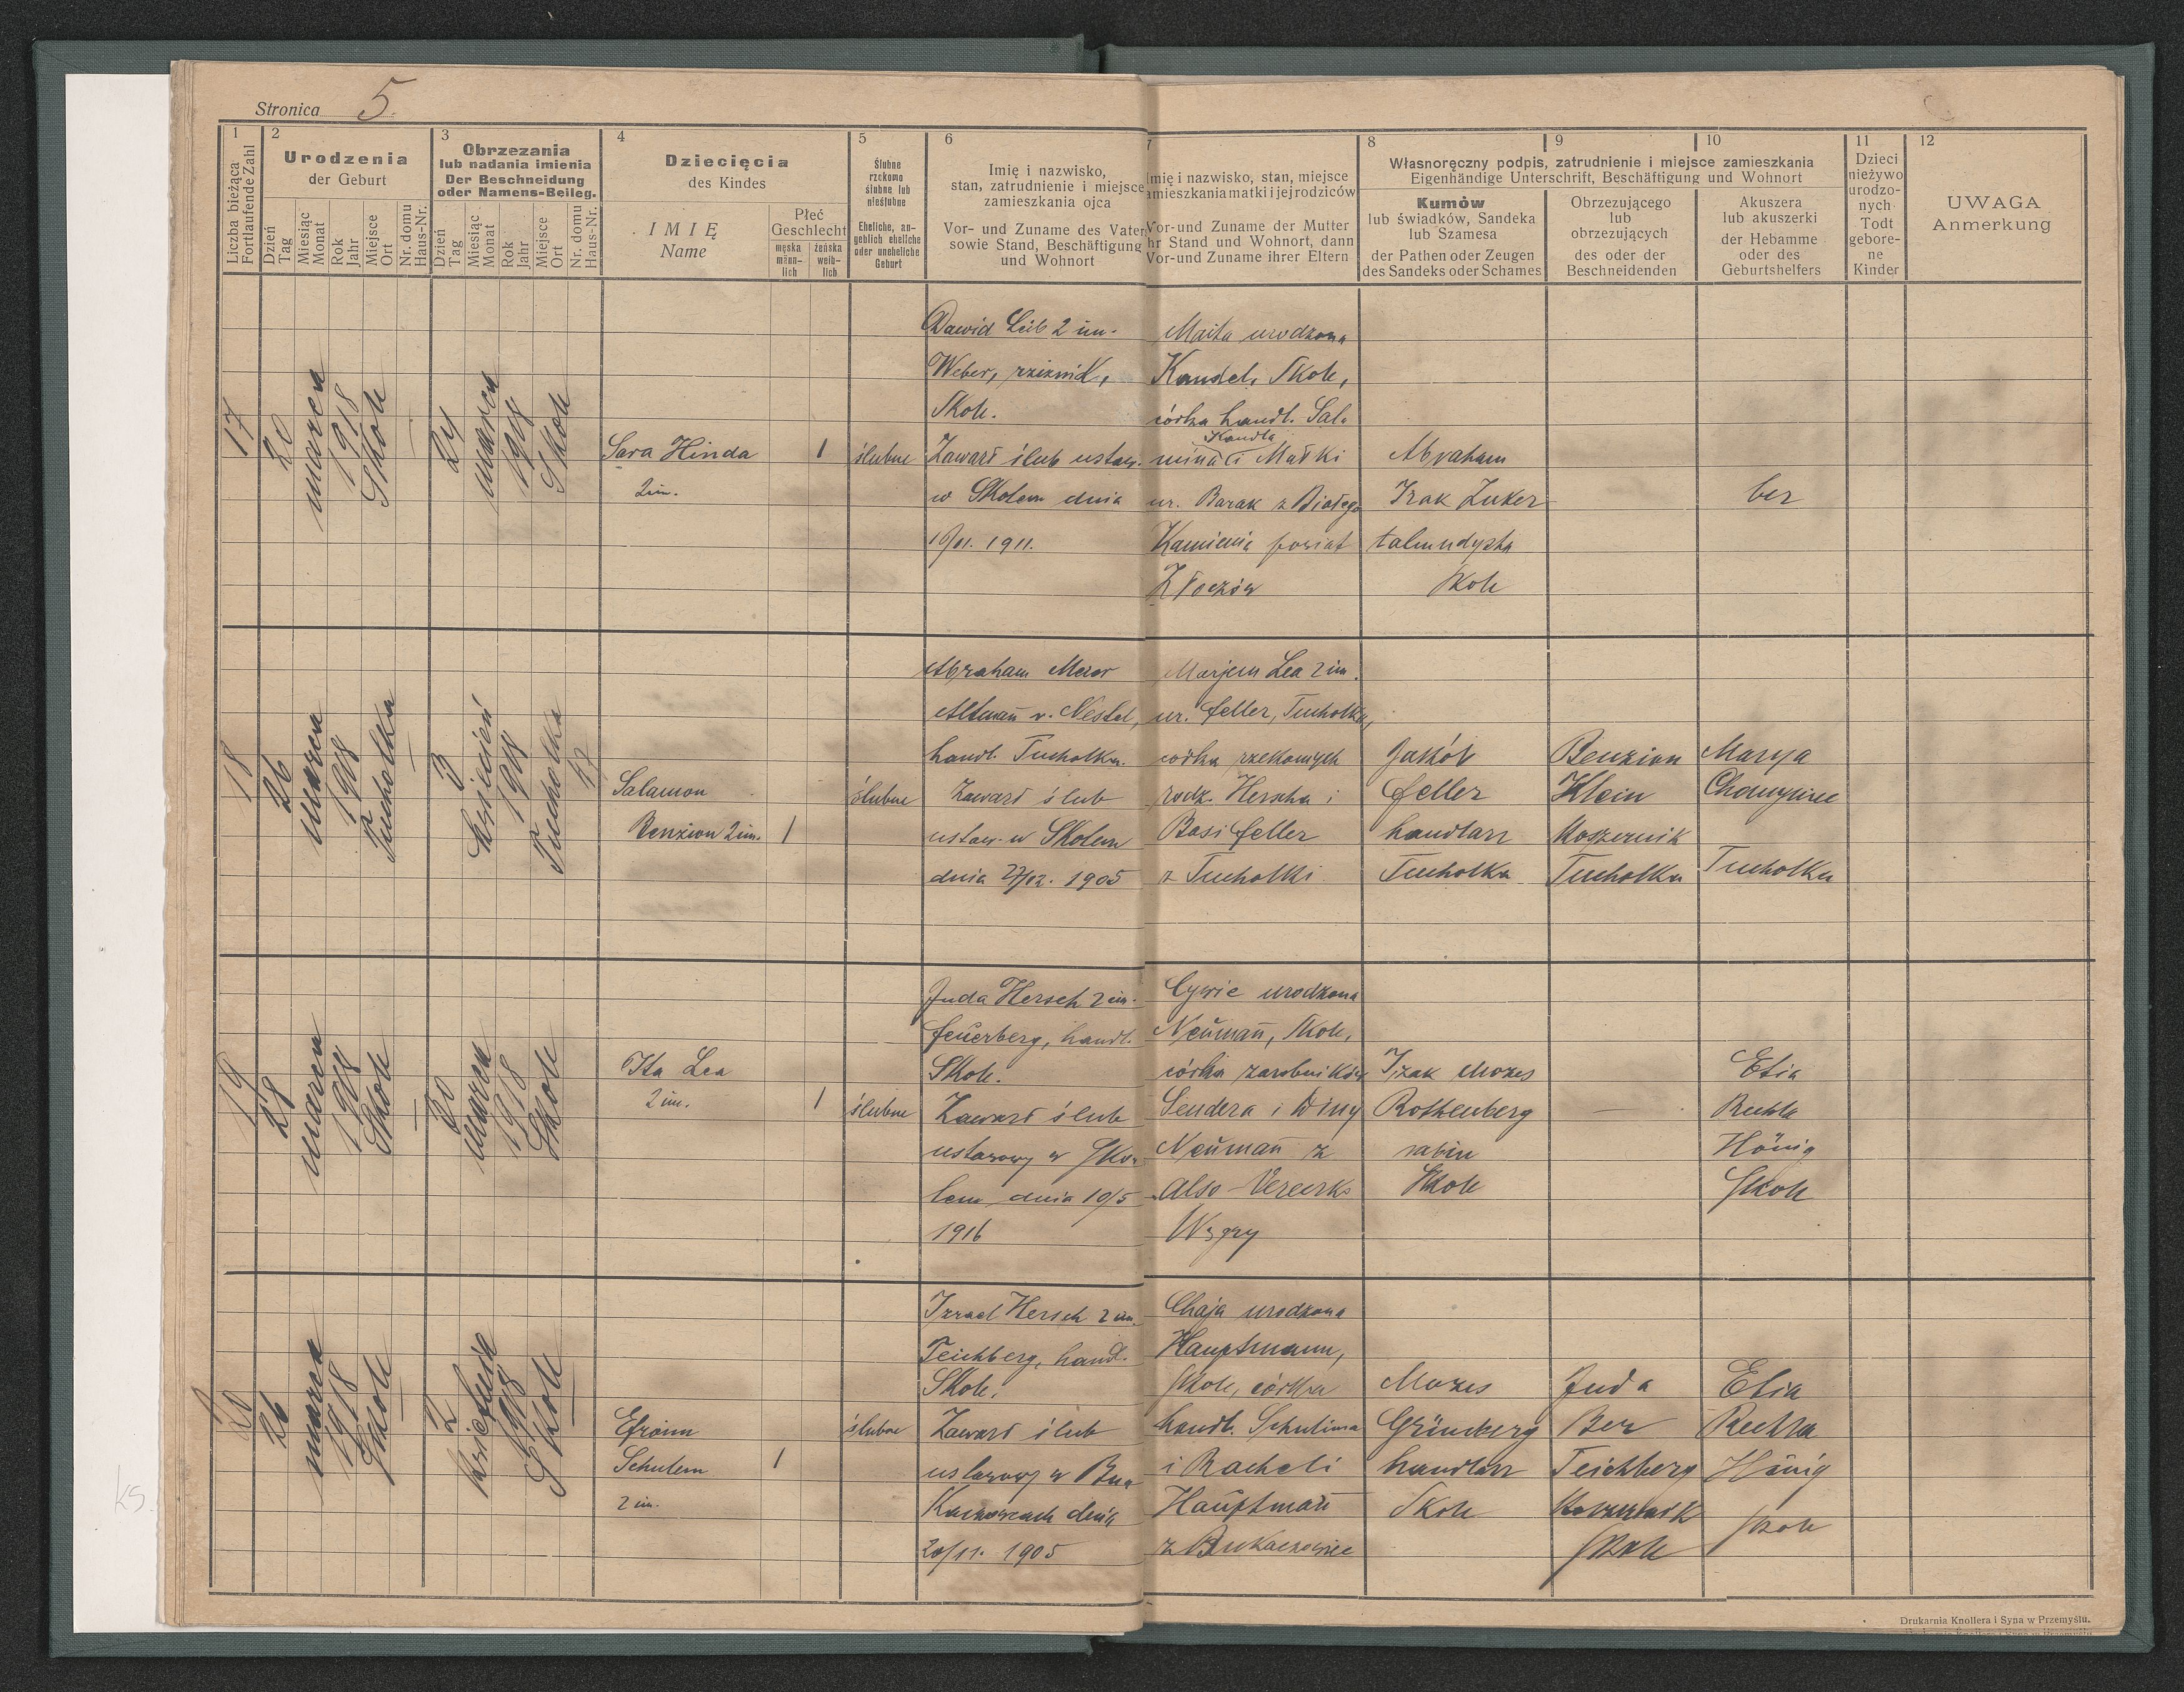 Stronica 5.
1 2 3 4 5 6 7 8 9 10 11 12
Liczba bieżąca
Fortlaufende Zahl
Urodzenia
der Geburt
Dzień
Tag
Miesiąc
Monat
Rok
Jahr
Miejsce
Ort
Nr. domu
Haus-Nr.
Obrzezania
lub nadania imienia
Der Beschneidung
oder Namens-Beileg.
Dzień
Tag
Miesiąc
Monat
Rok
Jahr
Miejsce
Ort
Nr. domu
Haus-Nr.
Dziecięcia
des Kindes
IMIĘ
Name
Płeć
Geschlecht
męska
männ-
lich
żeńska
weib-
lich
Ślubne
rzekomo
ślubne lub
nieślubne
Eheliche, an-
geblich eheliche
oder uneheliche
Geburt
Imię i nazwisko,
stan, zatrudnienie i miejsce
zamieszkania ojca
Vor- und Zuname des Vaters
sowie Stand, Beschäftigung
und Wohnort
Imię i nazwisko, stan, miejsce
zamieszkania matki i jej rodziców
Vor-und Zuname der Mutter
ihr Stand und Wohnort, dann
Vor-und Zuname ihrer Eltern
Własnoręczny podpis, zatrudnienie i miejsce zamieszkania
Eigenhändige Unterschrift, Beschäftigung und Wohnort
Kumów
lub świadków, Sandeka
lub Szamesa
der Pathen oder Zeugen
des Sandeks oder Schames
Obrzezującego
lub
obrzezujących
des oder der
Beschneidenden
Akuszera
lub akuszerki
der Hebamme
oder des
Geburtshelfers
Dzieci
nieżywo
urodzo-
nych
Todt
gebore-
ne
Kinder
UWAGA
Anmerkung
17
20
marca
1918
Skole
24
marca
1918
Skole
Sara Hinda
2 im.
1
ślubne
Dawid Leib 2 im.
Weber, rzeźnik,
Skole.
Zawarł ślub ustaw.
w Skolem dnia
1911.
Maita urodzona
Kandel, Skole,
córka handl. Sala
Kandla
mina i Małki
ur. Barak z Białego
Kamienia powiat
Złoczów
Abraham
Izak Zuker
talmudysta
Skole
ber
18
26
marca
1918
Tucholka
3
kwiecień
1918
Tucholka
Salamon
Benzion 2 im.
1
ślubne
Abraham Meier
Altmañ v. Nestel,
handl. Tucholka.
Zawarł ślub
ustaw. w Skolem
dnia 27/12. 1905
Marjem Lea 2 im.
ur. Feller, Tucholka,
córka rzekomych
rodz. Herscha i
Basi Feller
z Tucholki
Jakób
Feller
handlarz
Tucholka
Benzion
Klein
Koszernik
Tucholka
Marya
Tucholka
19
28
marca
1918
Skole
30
marca
1918
Skole
Ita Lea
2 im.
1
ślubne
Juda Hersch 2 im.
Feuerberg, handl.
Skole.
Zawarł ślub
ustawowy w Sko-
lem dnia 10/5
1916
Cywie urodzona
Neumañ, Skole,
córka zarobników
Sendera i Diny
Neumañ z
Also-Vereczke
Węgry
Izak Mozes
Rothenberg
rabin
Skole
—
Etia
Ruchla
Hönig
Skole
20
26
marca
1918
Skole
2
kwietnia
1918
Skole
Efroim
Schulem
2 im.
1
ślubne
Izrael Hersch 2 im.
Teichberg, handl.
Skole.
Zawarł ślub
ustawowy w Bu-
kaczowcach dnia
20/11. 1905
Chaja urodzona
Hauptmann,
Skole, córka
handl. Schulima
i Racheli
Hauptmañ
z Bukaczowiec
Mozes
Grünberg
handlarz
Skole
Juda
Ber
Teichberg
Skole
Etia
Ruchla
Hönig
Skole
Drukarnia Knollera i Syna w Przemyślu.
ks.